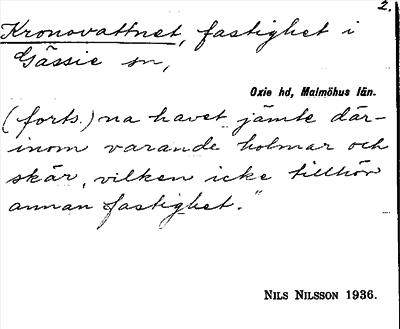 2.
Kronovattnet, fastighet i
Gässie sn,
Oxie hd, Malmöhus län.
(forts.) na havet jämte där-
inom varande holmar och
skär, vilken icke tillhör
annan fastighet."
NILS NILSSON 1936.